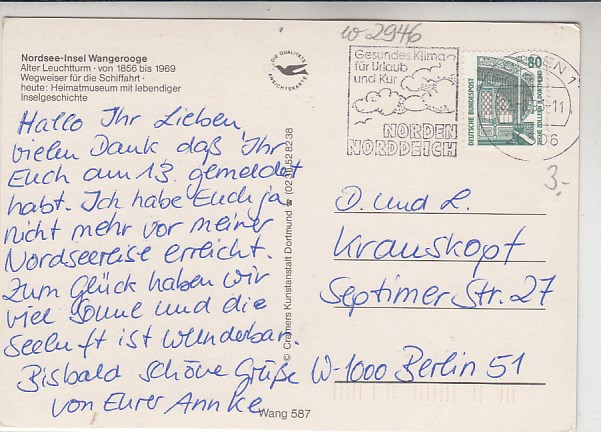 w 2946
Nordsee-Insel Wangerooge
Alter Leuchtturm · von 1856 bis 1969
Wegweiser für die Schiffahrt ·
heute: Heimatmuseum mit lebendiger
Inselgeschichte
DIE QUALITÄTS
ANSICHTSKARTE
Gesundes Klima
für Urlaub
und Kur
NORDEN
NORDDEICH
80
DEUTSCHE BUNDESPOST
ZECHE ZOLLERN II, DORTMUND
DEN 1
-11
506
3.-
Hallo Ihr Lieben,
vielen Dank daß Ihr
Euch am 13. gemeldet
habt. Ich habe Euch ja
nicht mehr vor meiner
Nordseereise erreicht.
Zum Glück haben wir
viel Sonne und die
Seeluft ist wunderbar.
Bisbald schöne Grüße
von Eurer Annke
D. und L.
Krauskopf
Septimer Str. 27
W-1000 Berlin 51
© Cramers Kunstanstalt Dortmund ☎ (02 31) 52 82 38
Wang 587